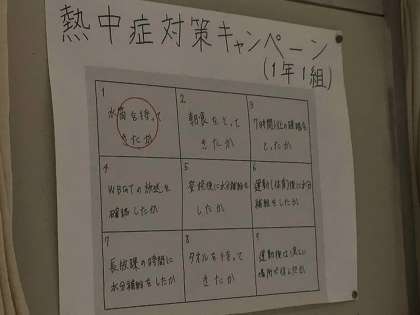 熱中症対策キャンペーン
(1年1組)
1
水筒を持って
きたか
2
朝食をとって
きたか
3
7時間以上の睡眠を
とったか
4
WBGTの放送を
確認したか
5
登校後に水分補給を
したか
6
運動(体育)後に水分
補給をしたか
7
長放課の時間に
水分補給をしたか
8
タオルを持って
きたか
9
運動後は涼しい
場所で休んだか